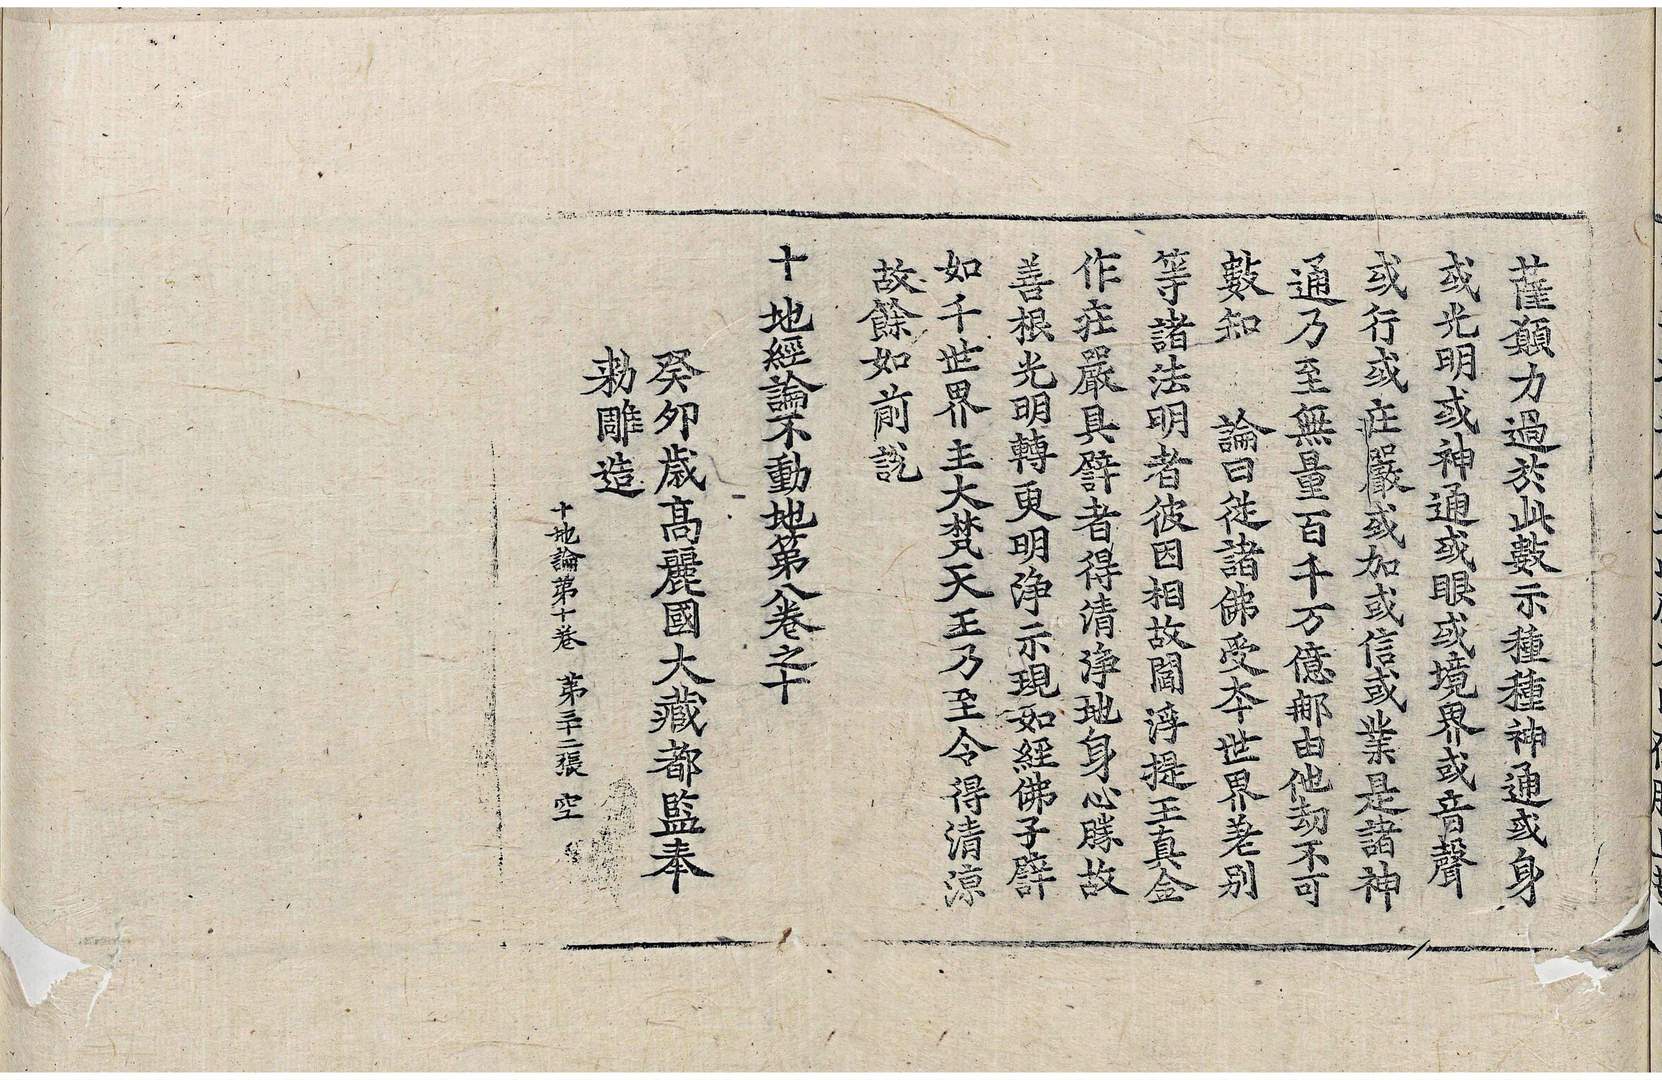 薩願力過於此數示種種神通或身
或光明或神通或眼或境界或音聲
或行或庄嚴或加或信或業是諸神
通乃至無量百千万億那由他劫不可
數知　論曰從諸佛受本世界差別
等諸法明者彼因相故閻浮提王真金
作庄嚴具譬者得清淨地身心勝故
善根光明轉更明淨示現如經佛子譬
如千世界主大梵天王乃至令得清涼
故餘如前說
十地經論不動地第八卷之十
癸卯歲高麗國大藏都監奉
勑雕造
十地論第十卷　第三十二張　空